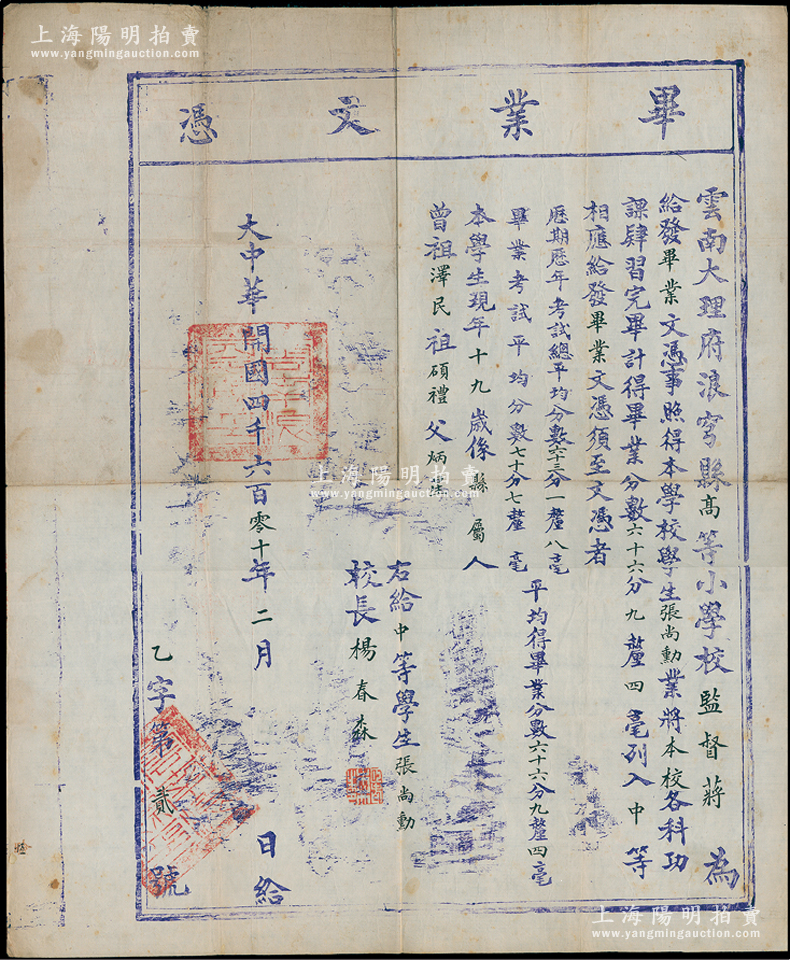 上海陽明拍賣
www.yangmingauction.com
畢業文憑
雲南大理府浪穹縣高等小學校監督蔣 為
給發畢業文憑事照得本學校學生張尚勳業將本校各科功
課肄習完畢計得畢業分數六十六分九釐四毫列入中等
相應給發畢業文憑須至文憑者
歷期歷年考試總平均分數六十三分一釐八毫
畢業考試平均分數七十分七釐 毫
平均得畢業分數六十六分九釐四毫
本學生現年十九歲係縣屬人
曾祖澤民 祖碩禮 父炳
右給中等學生張尚勳
校長楊春森
大中華開國四千六百零十年二月 日給
乙字第貳號
上海陽明拍賣
www.yangmingauction.com
上海陽明拍賣
www.yangmingauction.com